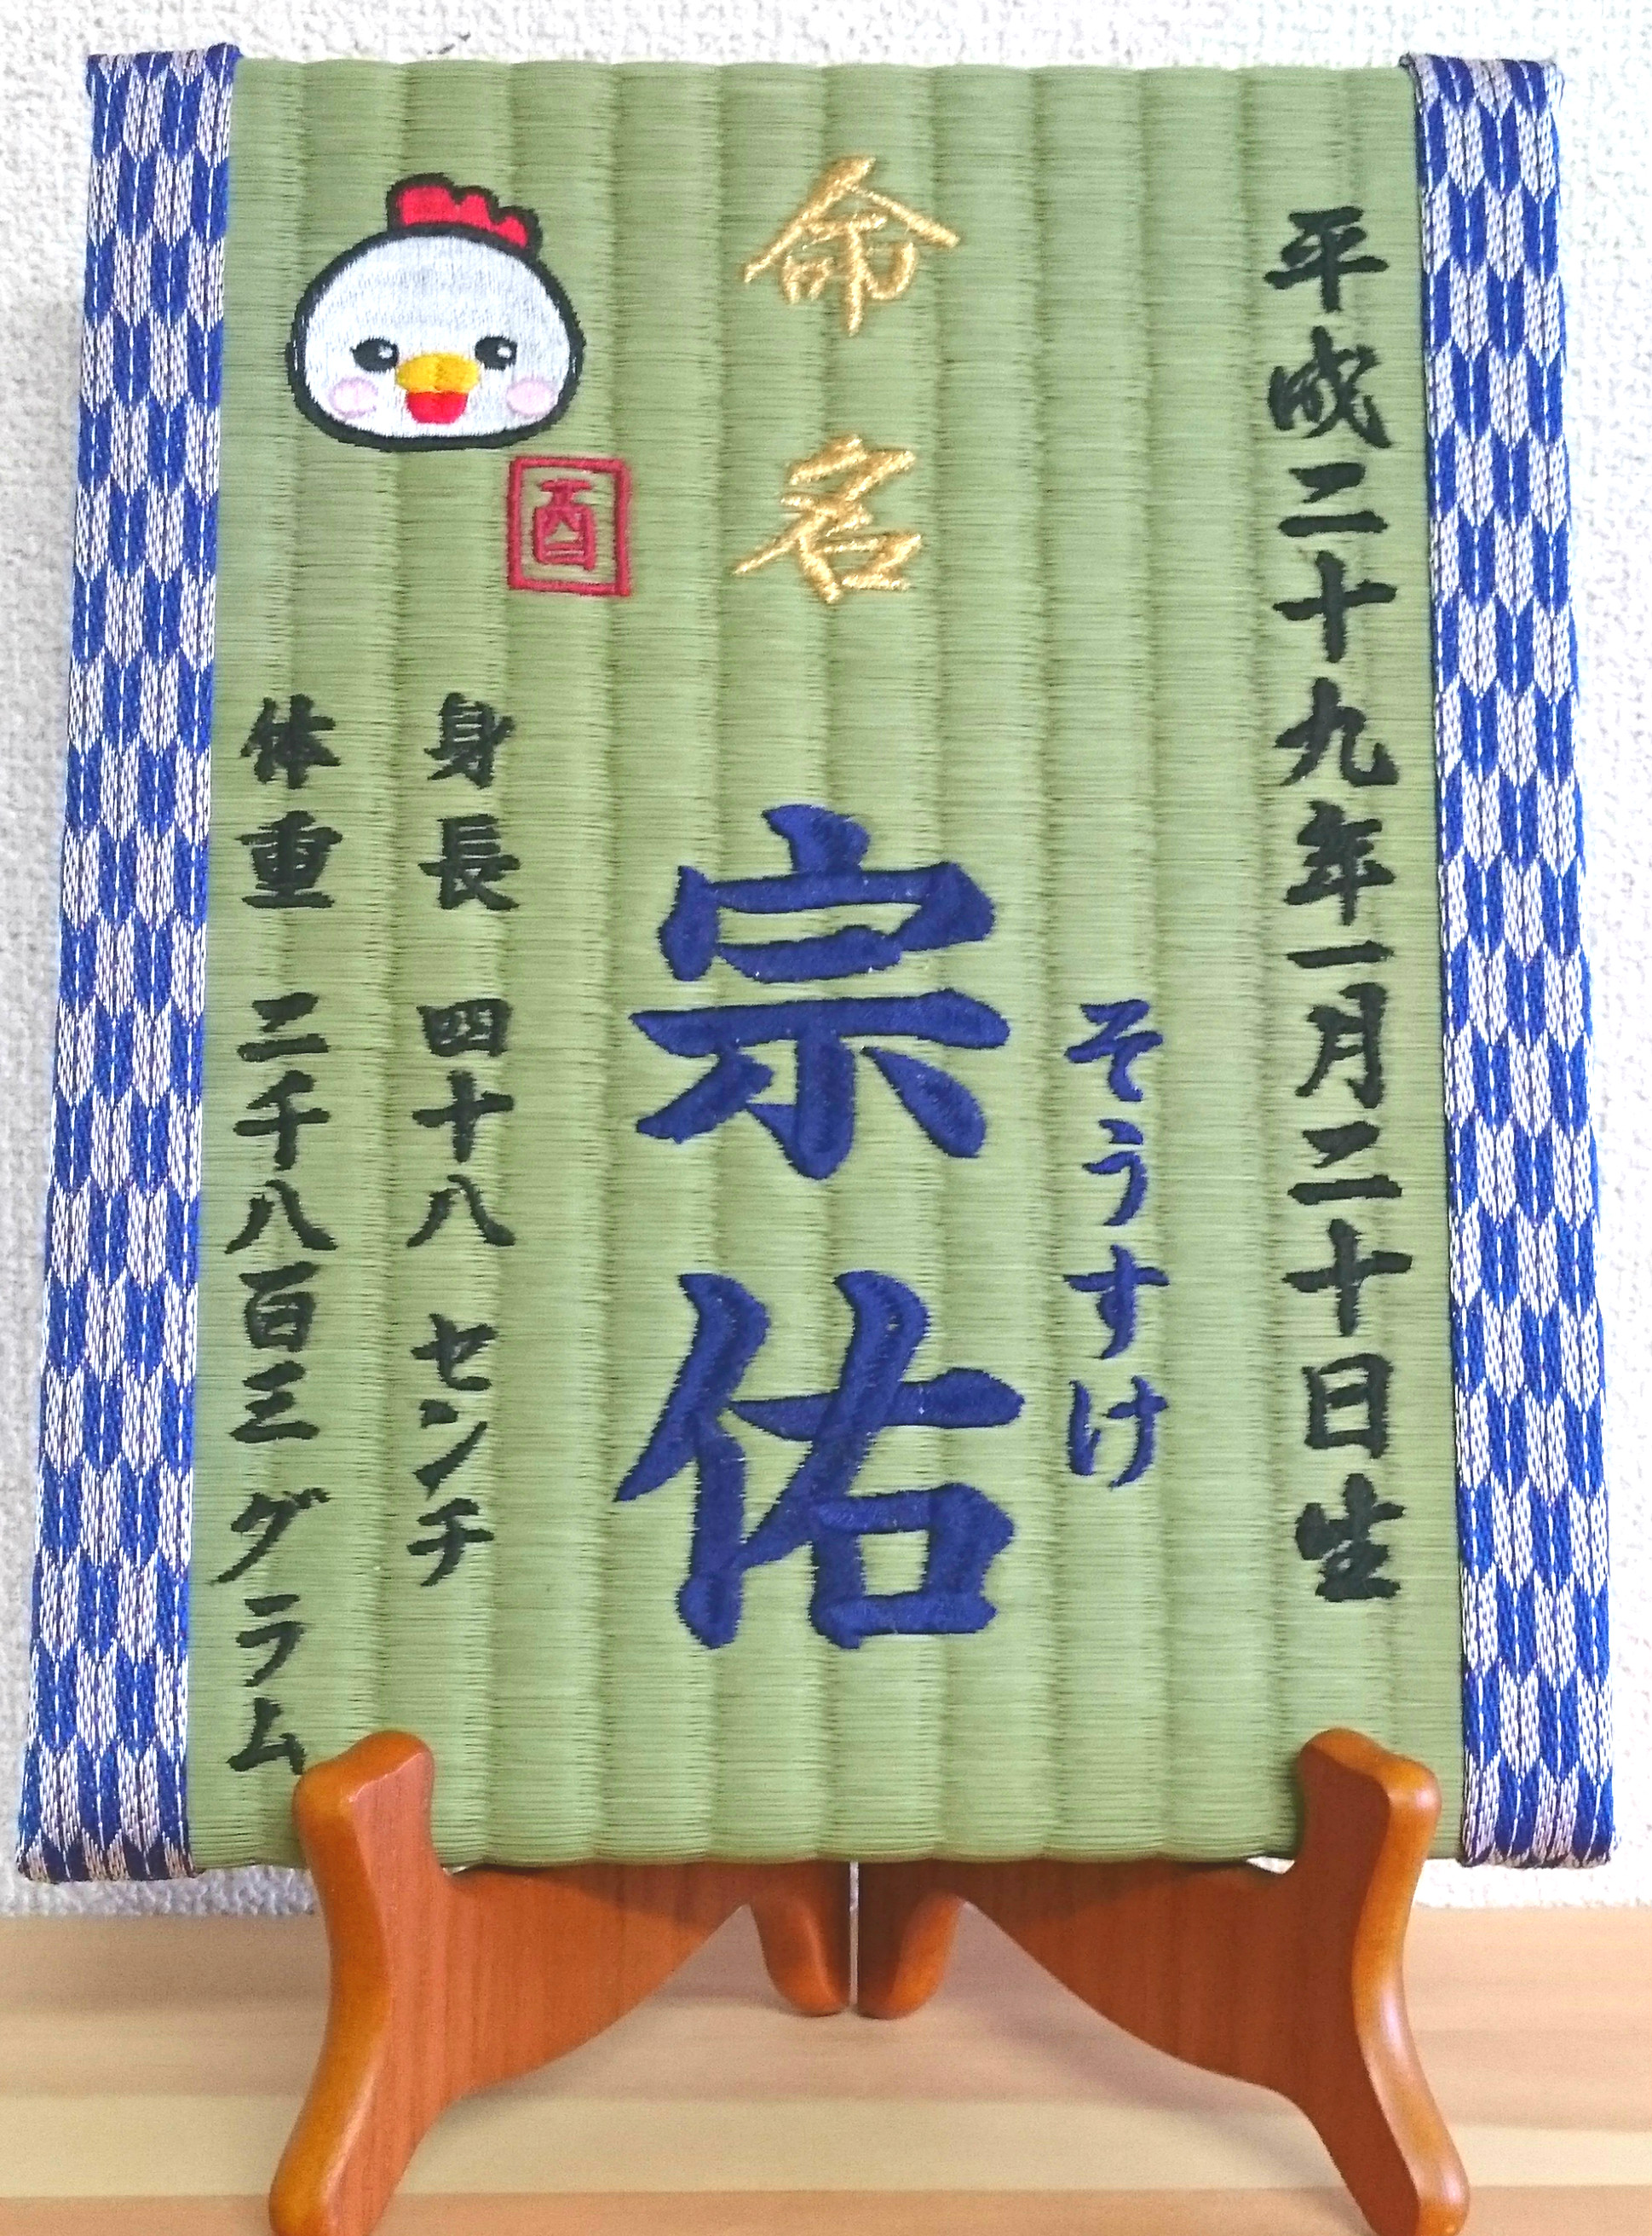 平成二十九年一月二十日生
命名
そうすけ
宗佑
身長 四十八 センチ
体重 二千八百三 グラム
酉